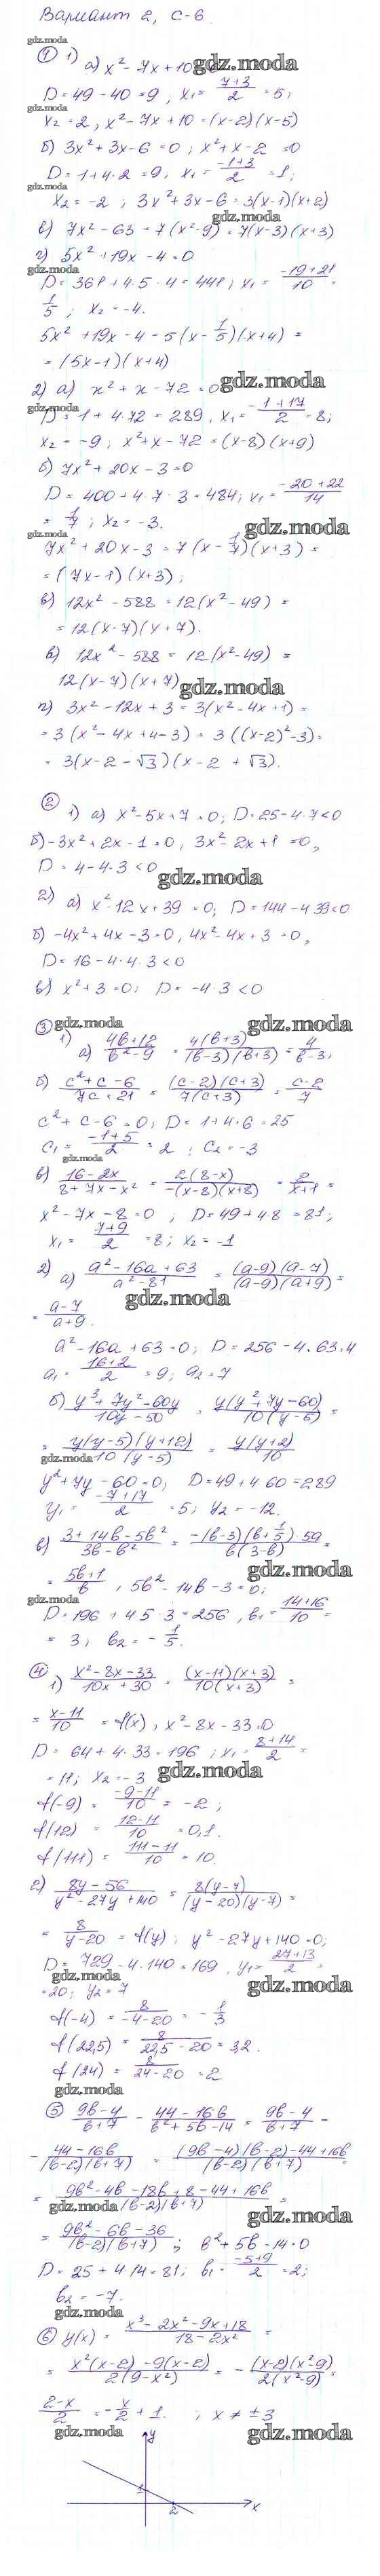 Вариант 2, С-6.
gdz.moda
① 1)
а) x² - 7x + 10
gdz.moda
D = 49 - 40 = 9, x₁ = (7+3)/2 = 5;
x₂ = 2, x² - 7x + 10 = (x-2)(x-5)
б) 3x² + 3x - 6 = 0, x² + x - 2 = 0
D = 1 + 4·2 = 9, x₁ = (-1+3)/2 = 1;
gdz.moda
x₂ = -2; 3x² + 3x - 6 = 3(x-1)(x+2)
gdz.moda
в) 7x² - 63 = 7(x² - 9) = 7(x-3)(x+3)
г) 5x² + 19x - 4 = 0
gdz.moda
D = 361 + 4·5·4 = 441; x₁ = (-19+21)/10 =
1/5; x₂ = -4.
5x² + 19x - 4 = 5(x - 1/5)(x+4) =
= (5x-1)(x+4)
2) а) x² + x - 72 = 0
gdz.moda
gdz.moda
D = 1 + 4·72 = 289, x₁ = (-1+17)/2 = 8;
x₂ = -9; x² + x - 72 = (x-8)(x+9)
б) 7x² + 20x - 3 = 0
D = 400 + 4·7·3 = 484; x₁ = (-20+22)/14
= 1/7; x₂ = -3.
gdz.moda
gdz.moda
7x² + 20x - 3 = 7(x - 1/7)(x+3) =
= (7x-1)(x+3);
в) 12x² - 588 = 12(x² - 49) =
= 12(x-7)(x+7).
в) 12x² - 588 = 12(x² - 49) =
12(x-7)(x+7)
gdz.moda
г) 3x² - 12x + 3 = 3(x² - 4x + 1) =
= 3(x² - 4x + 4 - 3) = 3((x-2)² - 3) =
= 3(x - 2 - √3)(x - 2 + √3).
②
1) а) x² - 5x + 7 = 0; D = 25 - 4·7 < 0
б) -3x² + 2x - 1 = 0, 3x² - 2x + 1 = 0,
D = 4 - 4·3 < 0
gdz.moda
2) а) x² - 12x + 39 = 0; D = 144 - 4·39 < 0
б) -4x² + 4x - 3 = 0, 4x² - 4x + 3 = 0,
D = 16 - 4·4·3 < 0
в) x² + 3 = 0; D = -4·3 < 0
③ gdz.moda
gdz.moda
1) а) (4b+12)/(b²-9) = 4(b+3)/((b-3)(b+3)) = 4/(b-3),
б) (c²+c-6)/(7c+21) = (c-2)(c+3)/(7(c+3)) = (c-2)/7
c² + c - 6 = 0; D = 1 + 4·6 = 25
c₁ = (-1+5)/2 = 2; c₂ = -3
gdz.moda
в) (16-2x)/(8+7x-x²) = 2(8-x)/(-(x-8)(x+8)) = 2/(x+1) =
x² - 7x - 8 = 0; D = 49 + 4·8 = 81;
x₁ = (7+9)/2 = 8; x₂ = -1
2) а) (a²-16a+63)/(a²-81) = (a-9)(a-7)/((a-9)(a+9)) =
gdz.moda
= (a-7)/(a+9).
a² - 16a + 63 = 0; D = 256 - 4·63 = 4
a₁ = (16+2)/2 = 9; a₂ = 7
б) (y³+7y²-60y)/(10y-50) = y(y²+7y-60)/(10(y-5)) =
= y(y-5)(y+12)/(10(y-5)) = y(y+2)/10
gdz.moda
y² + 7y - 60 = 0; D = 49 + 4·60 = 289
y₁ = (-7+17)/2 = 5; y₂ = -12.
в) (3+14b-5b²)/(3b-b²) = -(b-3)(b+1/5)·59/(b(3-b)) =
gdz.moda
= (5b+1)/b, 5b² - 14b - 3 = 0;
gdz.moda
D = 196 + 4·5·3 = 256, b₁ = (14+16)/10 =
= 3; b₂ = -1/5.
④
1) (x²-8x-33)/(10x+30) = (x-11)(x+3)/(10(x+3)) =
= (x-11)/10 = f(x), x² - 8x - 33 = 0
D = 64 + 4·33 = 196; x₁ = (8+14)/2 =
= 11; x₂ = -3
gdz.moda
f(-9) = (-9-11)/10 = -2;
f(12) = (12-11)/10 = 0,1.
f(111) = (111-11)/10 = 10.
2) (8y-56)/(y²-27y+140) = 8(y-7)/((y-20)(y-7)) =
= 8/(y-20) = f(y); y² - 27y + 140 = 0;
D = 729 - 4·140 = 169, y₁ = (27+13)/2 =
gdz.moda
gdz.moda
= 20; y₂ = 7
f(-4) = 8/(-4-20) = -1/3
f(22,5) = 8/(22,5-20) = 3,2.
f(24) = 8/(24-20) = 2
gdz.moda
⑤ (9b-4)/(b+7) - (44-16b)/(b²+5b-14) = (9b-4)/(b+7) -
- (44-16b)/((b-2)(b+7)) = ((9b-4)(b-2)-44+16b)/((b-2)(b+7)) =
= (9b²-4b-18b+8-44+16b)/((b-2)(b+7)) =
gdz.moda
= (9b²-6b-36)/((b-2)(b+7)); b² + 5b - 14 = 0
D = 25 + 4·14 = 81; b₁ = (-5+9)/2 = 2;
b₂ = -7.
gdz.moda
⑥ y(x) = (x³-2x²-9x+18)/(18-2x²) =
= (x²(x-2)-9(x-2))/(2(9-x²)) = -(x-2)(x²-9)/(2(x²-9)) =
(2-x)/2 = -x/2 + 1. ; x ≠ ±3
gdz.moda
gdz.moda
y
1
2
x